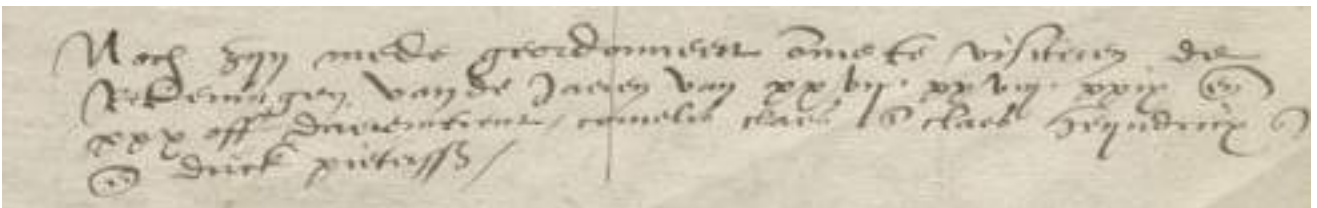 Noch zyn mede geordonneert omme te visiteren de
Rekeningen van de Jaeren van xxvij xxviij xxix en
xxx off daeromtrent / cornelis claes claes heyndricx
en dirck pieterss /